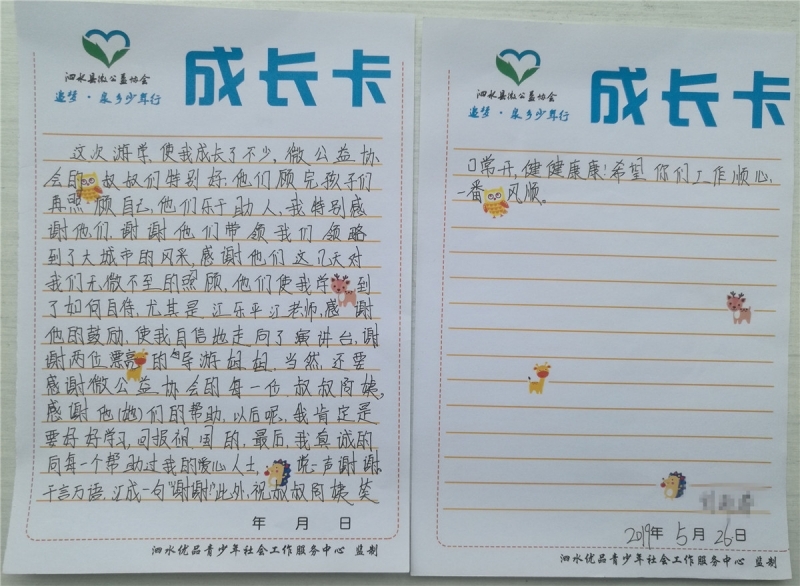 泗水县微公益协会
追梦·泉乡少年行
成长卡
这次游学使我成长了不少,微公益协
会的叔叔们特别好,他们顾完孩子们
再照顾自己,他们乐于助人,我特别感
谢他们,谢谢他们带领我们领略
到了大城市的风采,感谢他们这几天对
我们无微不至的照顾,他们使我学到
了如何自待,尤其是江乐平江老师,感谢
他的鼓励,使我自信地走向了演讲台,谢
谢两位漂亮的导游姐姐,当然,还要
感谢微公益协会的每一位叔叔阿姨,
感谢他(她)们的帮助,以后呢,我肯定是
要好好学习,回报祖国的,最后,我真诚的
向每一个帮助过我的爱心人士,说一声谢谢,
千言万语,汇成一句"谢谢!"此外,祝叔叔阿姨笑
年 月 日
泗水优品青少年社会工作服务中心 监制
泗水县微公益协会
追梦·泉乡少年行
成长卡
口常开,健健康康!希望你们工作顺心,
一番风顺。
2019年 5月 26日
泗水优品青少年社会工作服务中心 监制